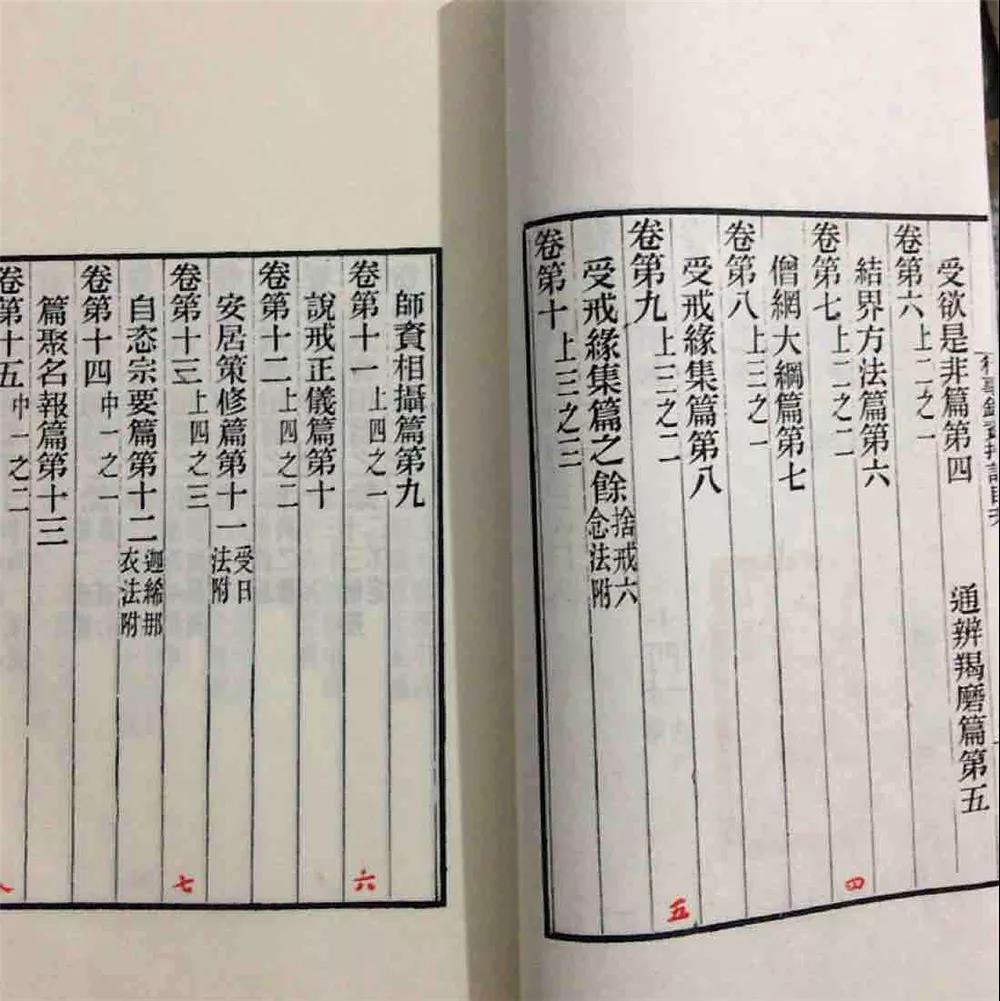 受欲是非篇第四 通辨羯磨篇第五
卷第六 上二之一
結界方法篇第六
卷第七 上二之二
僧網大綱篇第七
卷第八 上三之一
受戒緣集篇第八
卷第九 上三之二
受戒緣集篇之餘 捨戒六念法附
卷第十 上三之三
四
五
師資相攝篇第九
卷第十一 上四之一
說戒正儀篇第十
卷第十二 上四之二
安居策修篇第十一 受日法附
卷第十三 上四之三
自恣宗要篇第十二 迦絺那衣法附
卷第十四 中一之一
篇聚名報篇第十三
卷第十五 中一之二
六
七